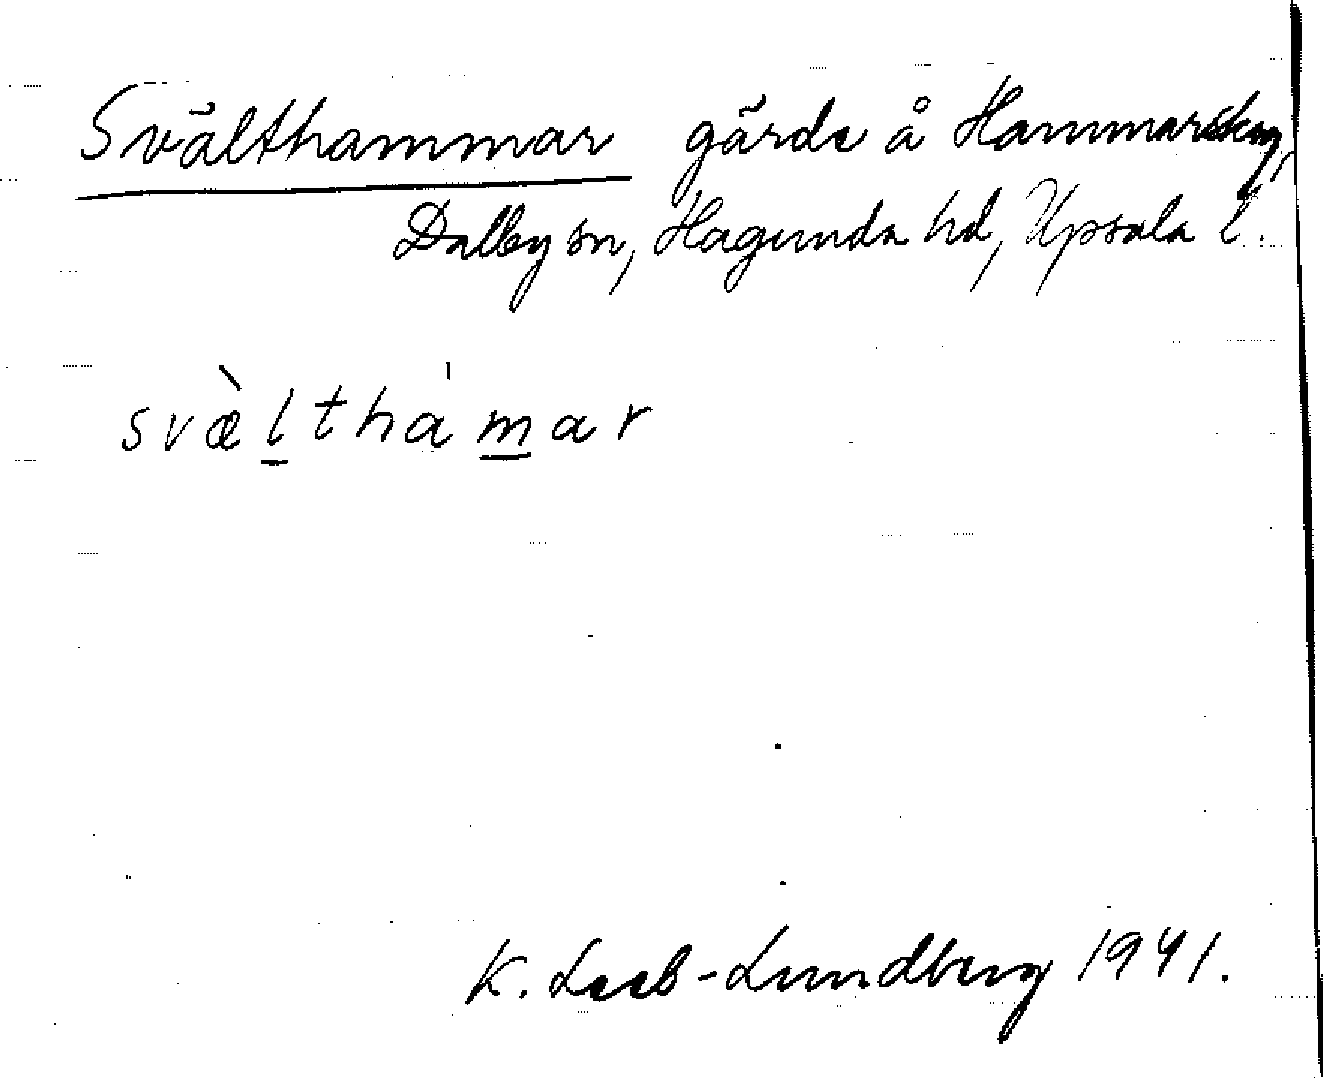 Svälthammar gärde å Hammarskog,
Dalby sn, Hagunda hd, Upsala l.
svæ̀l̲thàm̲ar
K. Leeb-Lundberg 1941.